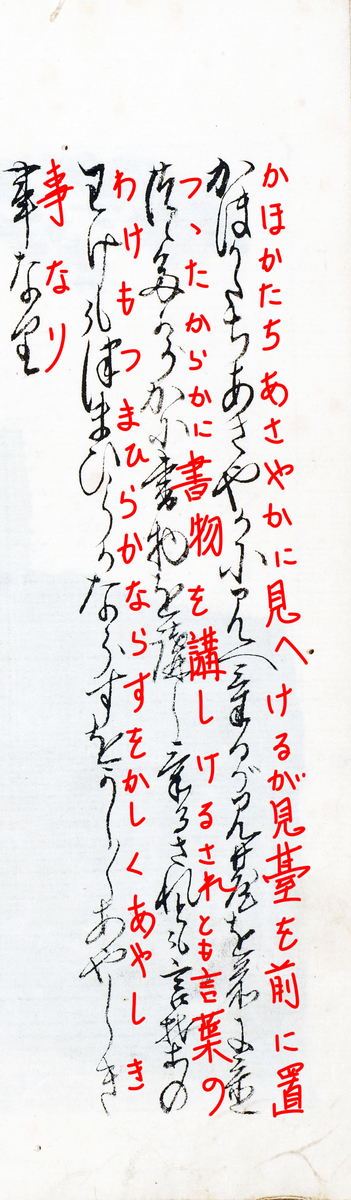 かほかたちあさやかに見へけるが見臺を前に置
かほかたちあさやかに見へけるが見臺を前に置
つゝたからかに書物を講しけるされとも言葉の
つゝたからかに書物を講しけるされとも言葉の
わけもつまひらかならすをかしくあやしき
わけもつまひらかならすをかしくあやしき
事なり
事なり